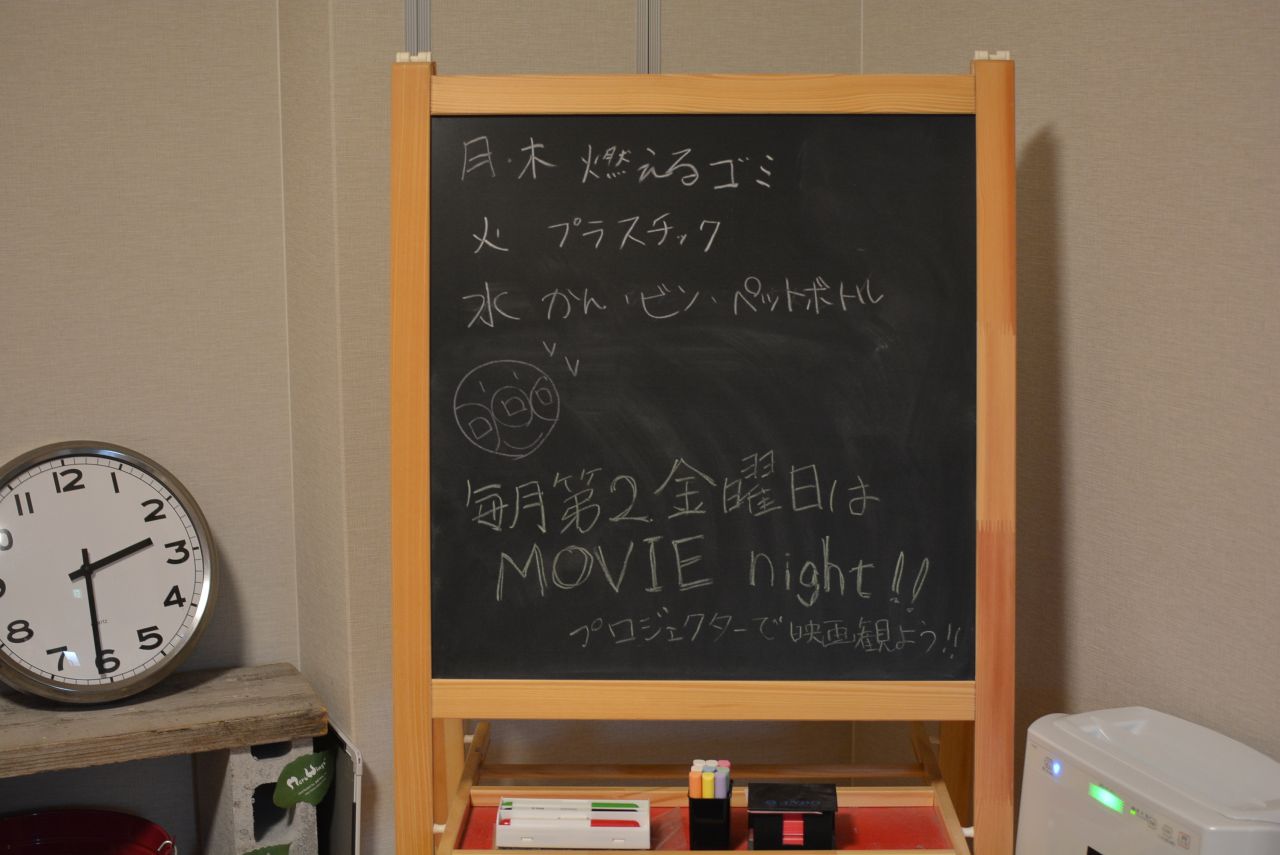 月・木 燃えるゴミ
火 プラスチック
水 かん・ビン・ペットボトル
毎月第2金曜日は
MOVIE night!!
プロジェクターで映画観よう!!
12
1
2
3
4
5
6
7
8
11
QUARTZ